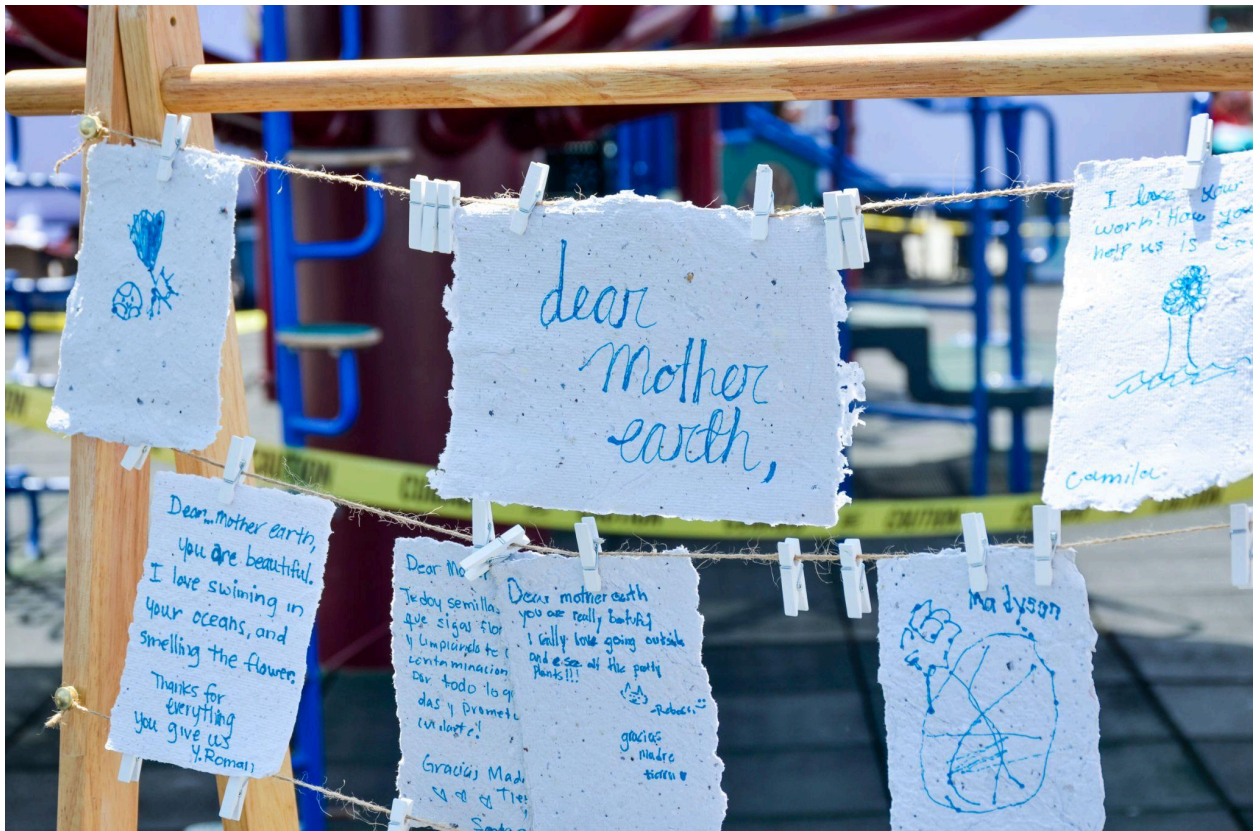 dear
mother
earth,
I love your
work! How you
help us is
Camila
Dear mother earth,
you are beautiful.
I love swiming in
your oceans, and
smelling the flower.
Thanks for
everything
you give us
Y. Roman
Dear
Te doy semillas
que sigas
y limpiándote
contaminacion
por todo lo
das y
cuidarte!
Gracias
Dear mother earth
you are really
I really love going outside
and see all the
Plants!!!
gracias
madre
tierra
Madyson
CAUTION
CAUTION